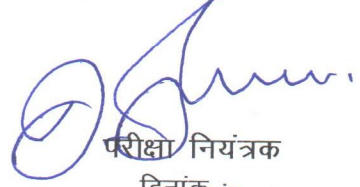 परीक्षा नियंत्रक
दिनांक